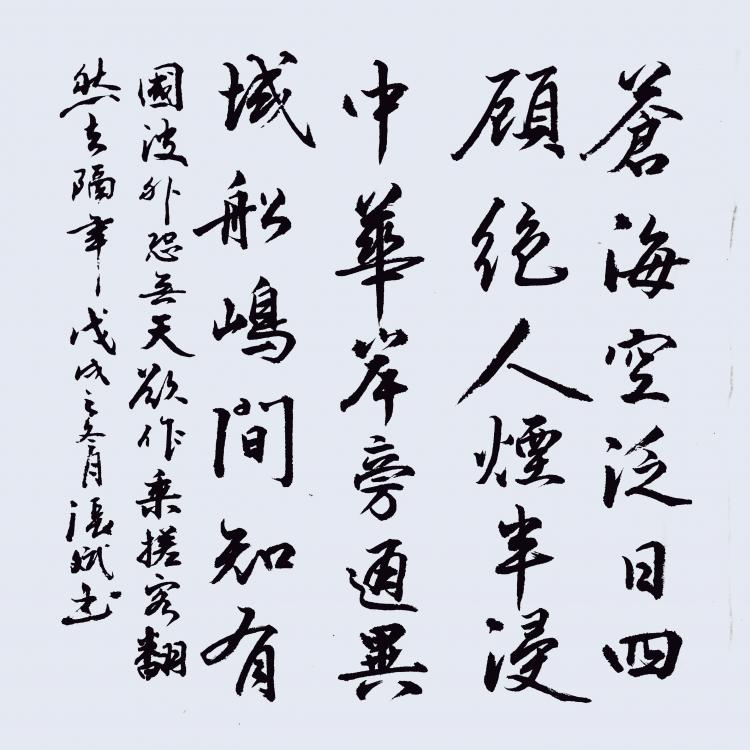 蒼海空泛日四
顧絕人煙半浸
中華岸旁通異
域船嶋間知有
國波外恐無天欲作乘搓客翻
然去隔年戊戌之冬月張斌書